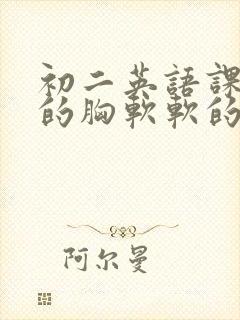 初二英語課
的胸軟軟的
阿尔曼